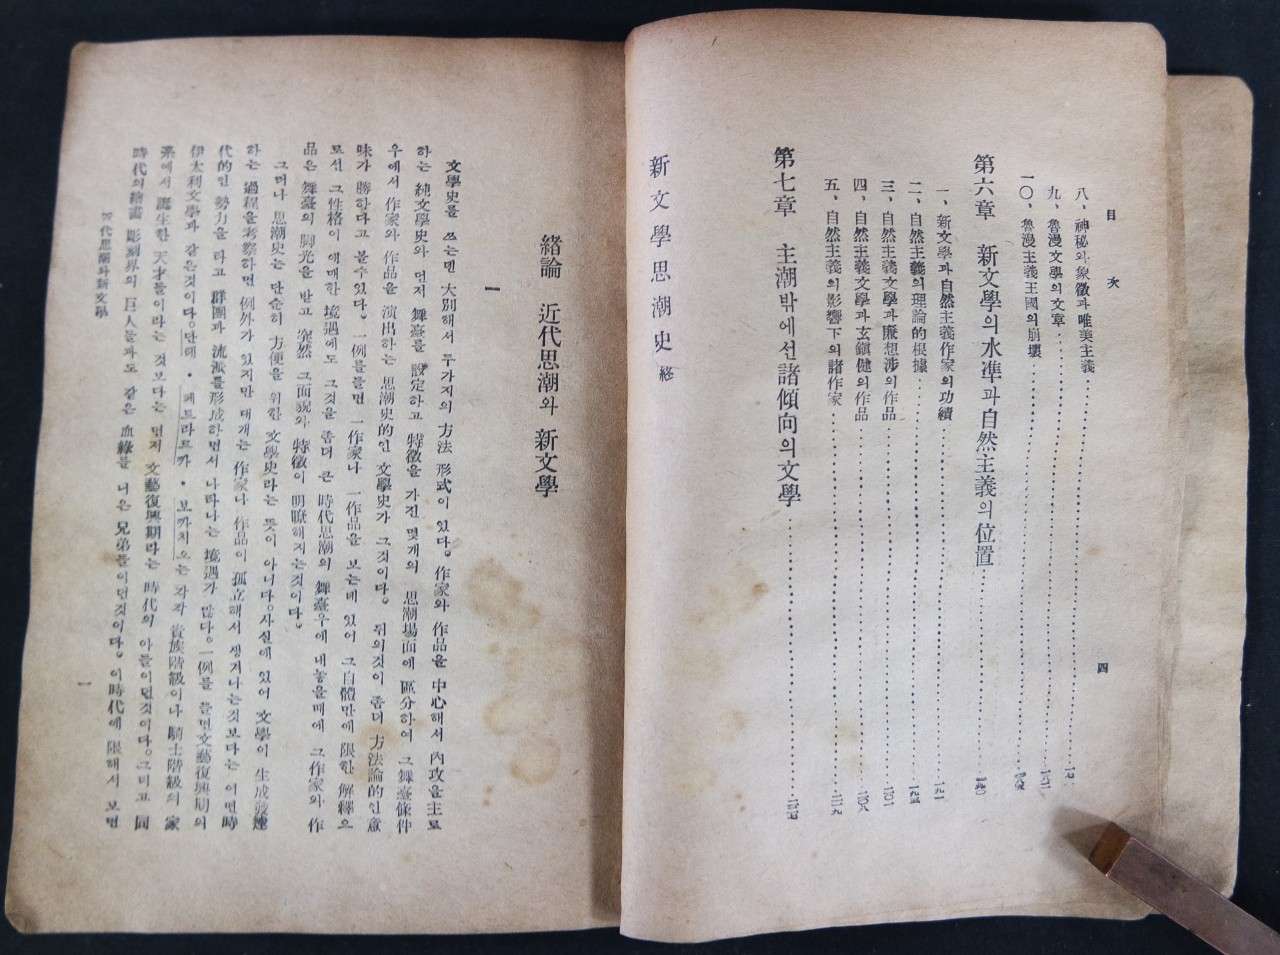 目 次
四
八、神秘와象徵과唯美主義
九、魯漫文學의文章
一〇、魯漫主義王國의崩壞
第六章 新文學의水準과自然主義의位置
一、新文學과自然主義作家의功績
二、自然主義의理論的根據
三、自然主義文學과廉想涉의作品
四、自然主義文學과玄鎭健의作品
五、自然主義의影響下의諸作家
第七章 主潮밖에선諸傾向의文學
新文學思潮史 終
緖論 近代思潮와 新文學
一
文學史를 쓰는덴 大別해서 두가지의 方法 形式이 있다。作家와 作品을 中心해서 內攻을主로
하는 純文學史와 먼저 舞臺를 設定하고 特徵을 가진 몇개의 思潮場面에 區分하여 그舞臺條件
우에서 作家와 作品을 演出하는 思潮史的인 文學史가 그것이다。뒤의것이 좀더 方法論的인意
味가 勝하다고 볼수있다。一例를들면 一作家나 一作品을 보는데 있어 그自體만에 限한 解釋으
로선 그性格이 애매한 境遇에도 그것을 좀더 큰 時代思潮의 舞臺우에 내놓을때에 그作家와 作
品은 舞臺의 脚光을 받고 突然 그面貌와 特徵이 明瞭해지는것이다。
그러나 思潮史는 단순히 方便을 위한 文學史라는 뜻이 아니다。사실에 있어 文學이 生成發達
하는 過程을考察하면 例外가 있지만 대개는 作家나 作品이 孤立해서 생겨나는것보다는 어떤時
代的인 勢力을 타고 群團과 流派를形成하면서 나타나는 境遇가 많다。一例를 들면文藝復興期의
伊太利文學과 같은것이다。단테・페트라르카・보까치오는 각각 貴族階級이나 騎士階級의 家
系에서 誕生한 天才들이라는 것보다는 먼저 文藝復興期라는 時代의 아들이던것이다。그리고 同
時代의繪畫 彫刻界의 巨人들과도 같은 血緣를 너은 兄弟들이던것이다。이時代에 限해서 보면
近代思潮와新文學
一